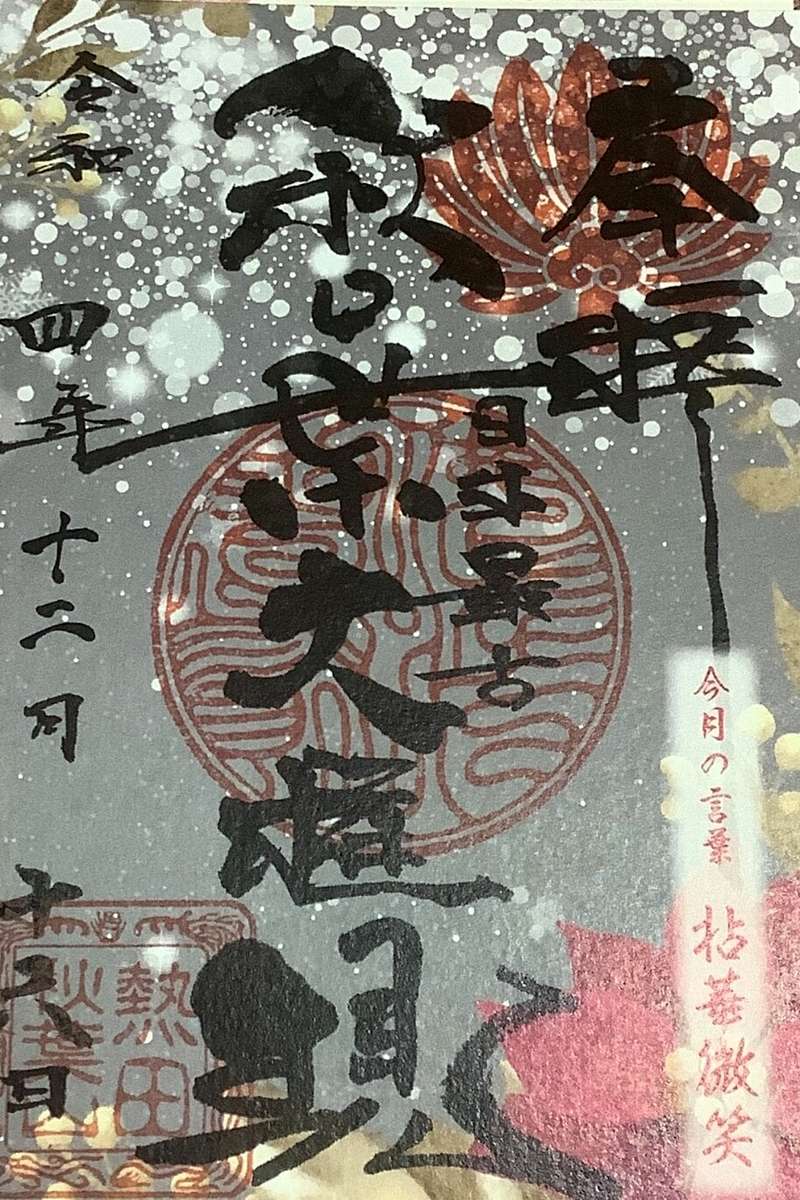 奉拝
日本最古
秋葉大権現
令和四年十二月十六日
今日の言葉
拈華微笑
熱田
秋葉山